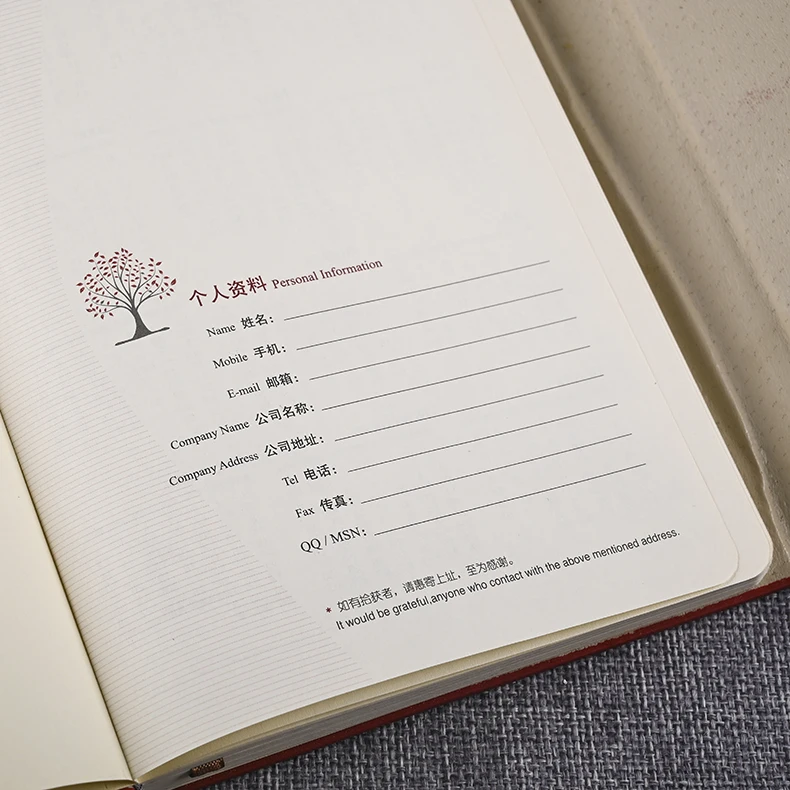 个人资料 Personal Information
Name 姓名:
Mobile 手机:
E-mail 邮箱:
Company Name 公司名称:
Company Address 公司地址:
Tel 电话:
Fax 传真:
QQ / MSN:
* 如有拾获者，请惠寄上址，至为感谢。
It would be grateful,anyone who contact with the above mentioned address.